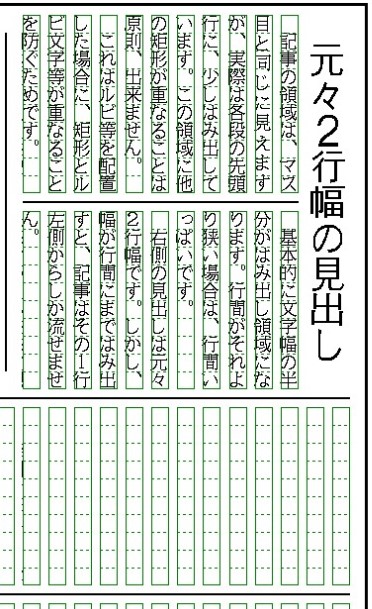 元々２行幅の見出し
記事の領域は、マス
目と同じに見えます
が、実際は各段の先頭
行に、少しはみ出して
います。この領域に他
の矩形が重なることは
原則、出来ません。
これはルビ等を配置
した場合に、矩形とル
ビ文字等が重なること
を防ぐためです。
基本的に文字幅の半
分がはみ出し領域にな
ります。行間がそれよ
り狭い場合は、行間い
っぱいです。
右側の見出しは元々
２行幅です。しかし、
幅が行間にまではみ出
すと、記事はその１行
左側からしか流せませ
ん。